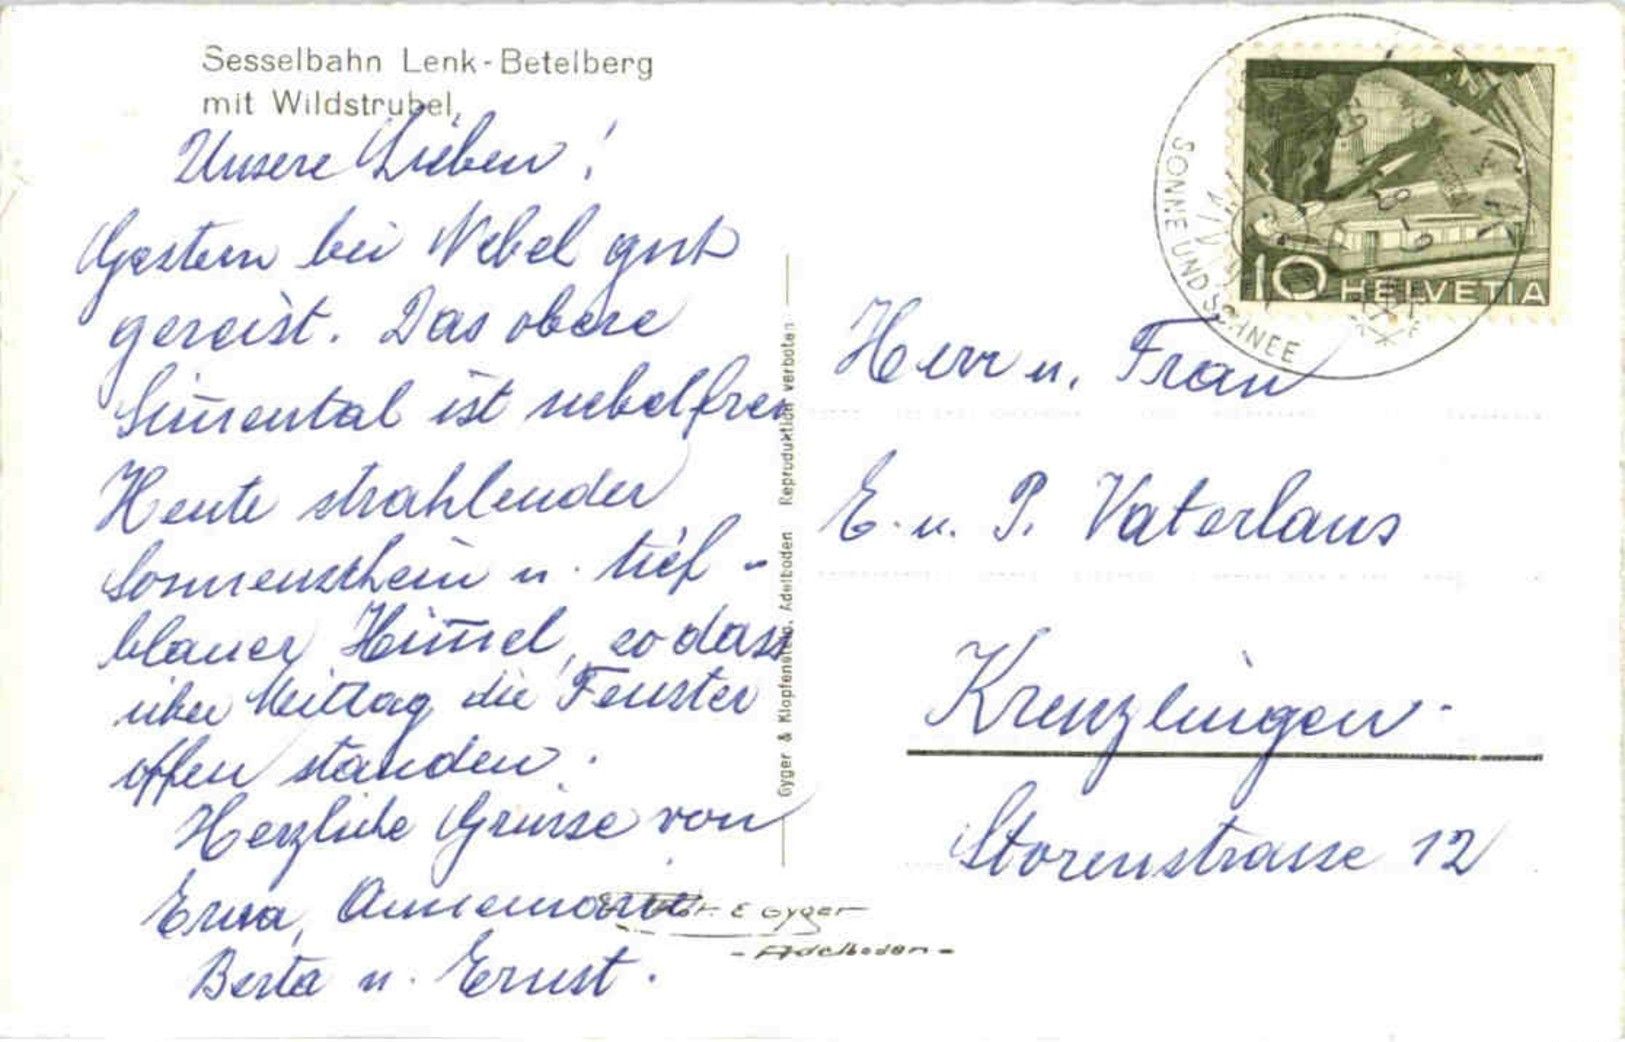 Sesselbahn Lenk-Betelberg
mit Wildstrubel
Unsere Lieben!
Gestern bei Nebel gut
gereist. Das obere
Sim̅ental ist nebelfrei
Heute strahlender
Sonnenschein u. tief-
blauer Him̅el, so dass
über Mittag die Fenster
offen standen.
Herzliche Grüsse von
Erna, Annemarie
Berta u. Ernst.
Gyger & Klopfenstein, Adelboden Reproduktion verboten
Phot. E Gyger
- Adelboden -
SONNE UND SCHNEE
10 HELVETIA
Herr u. Frau
E. u. P. Vaterlaus
Kreuzlingen
Storenstrasse 12